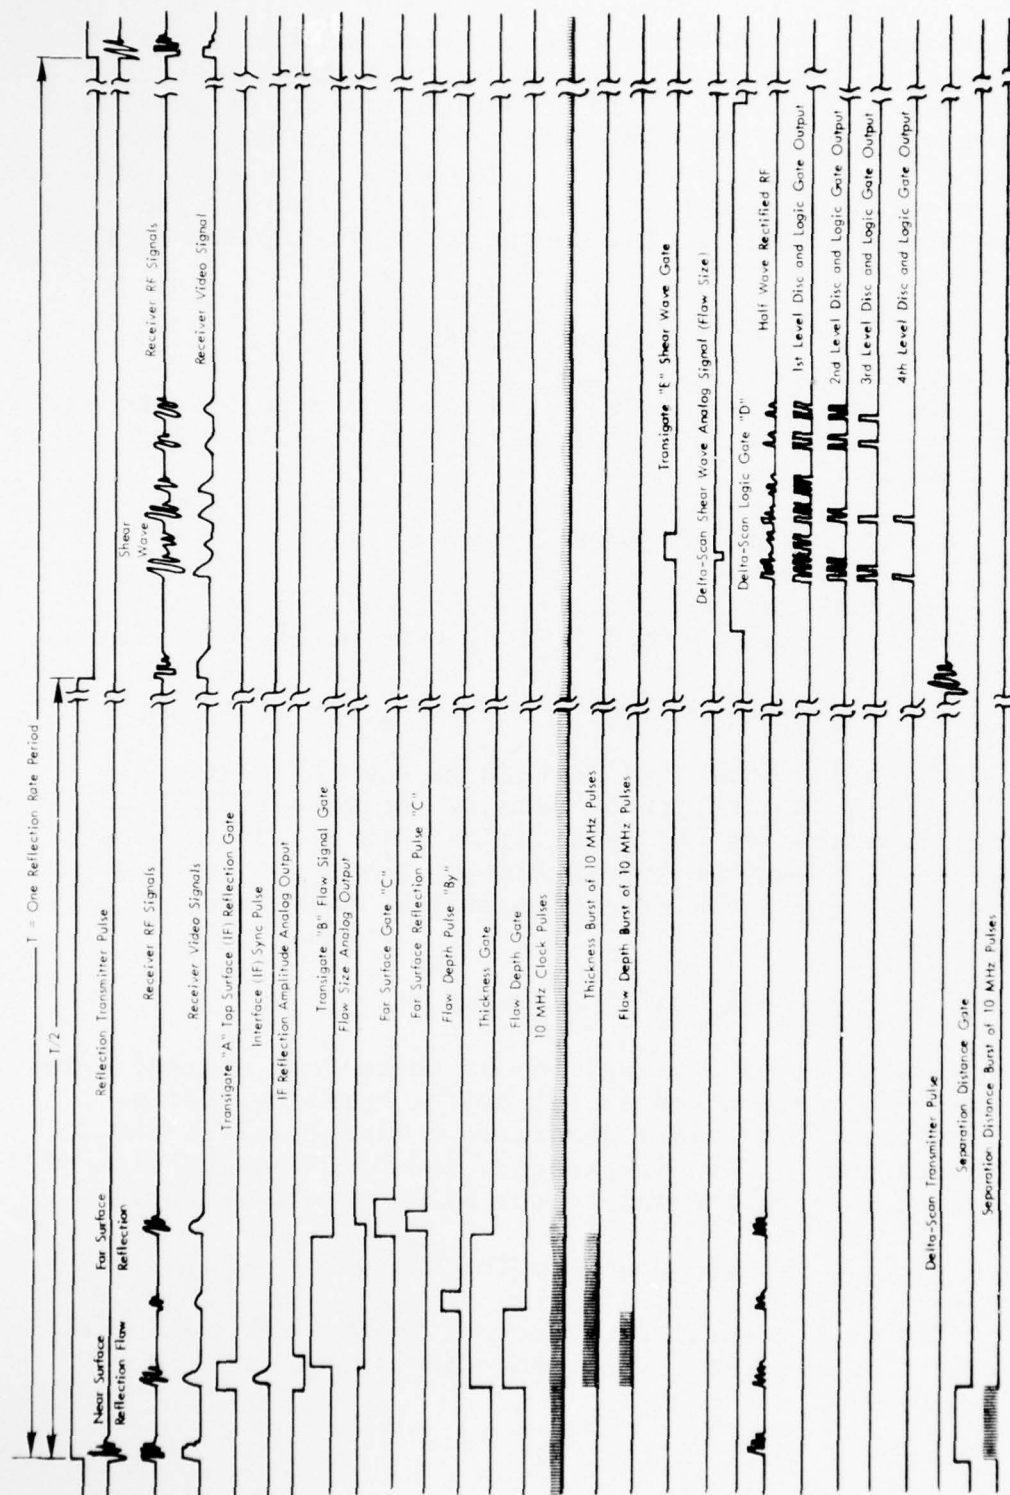 T = One Reflection Rate Period
T/2
Reflection Transmitter Pulse
Near Surface
Reflection Flaw
Far Surface
Reflection
Receiver RF Signals
Shear
Wave
Receiver RF Signals
Receiver Video Signals
Receiver Video Signal
Transigate "A" Top Surface (IF) Reflection Gate
Interface (IF) Sync Pulse
IF Reflection Amplitude Analog Output
Transigate "B" Flaw Signal Gate
Flaw Size Analog Output
Far Surface Gate "C"
Far Surface Reflection Pulse "C"
Flaw Depth Pulse "By"
Thickness Gate
Flaw Depth Gate
10 MHz Clock Pulses
Thickness Burst of 10 MHz Pulses
Flaw Depth Burst of 10 MHz Pulses
Transigate "E" Shear Wave Gate
Delta-Scan Shear Wave Analog Signal (Flaw Size)
Delta-Scan Logic Gate "D"
Half Wave Rectified RF
1st Level Disc and Logic Gate Output
2nd Level Disc and Logic Gate Output
3rd Level Disc and Logic Gate Output
4th Level Disc and Logic Gate Output
Delta-Scan Transmitter Pulse
Separation Distance Gate
Separation Distance Burst of 10 MHz Pulses